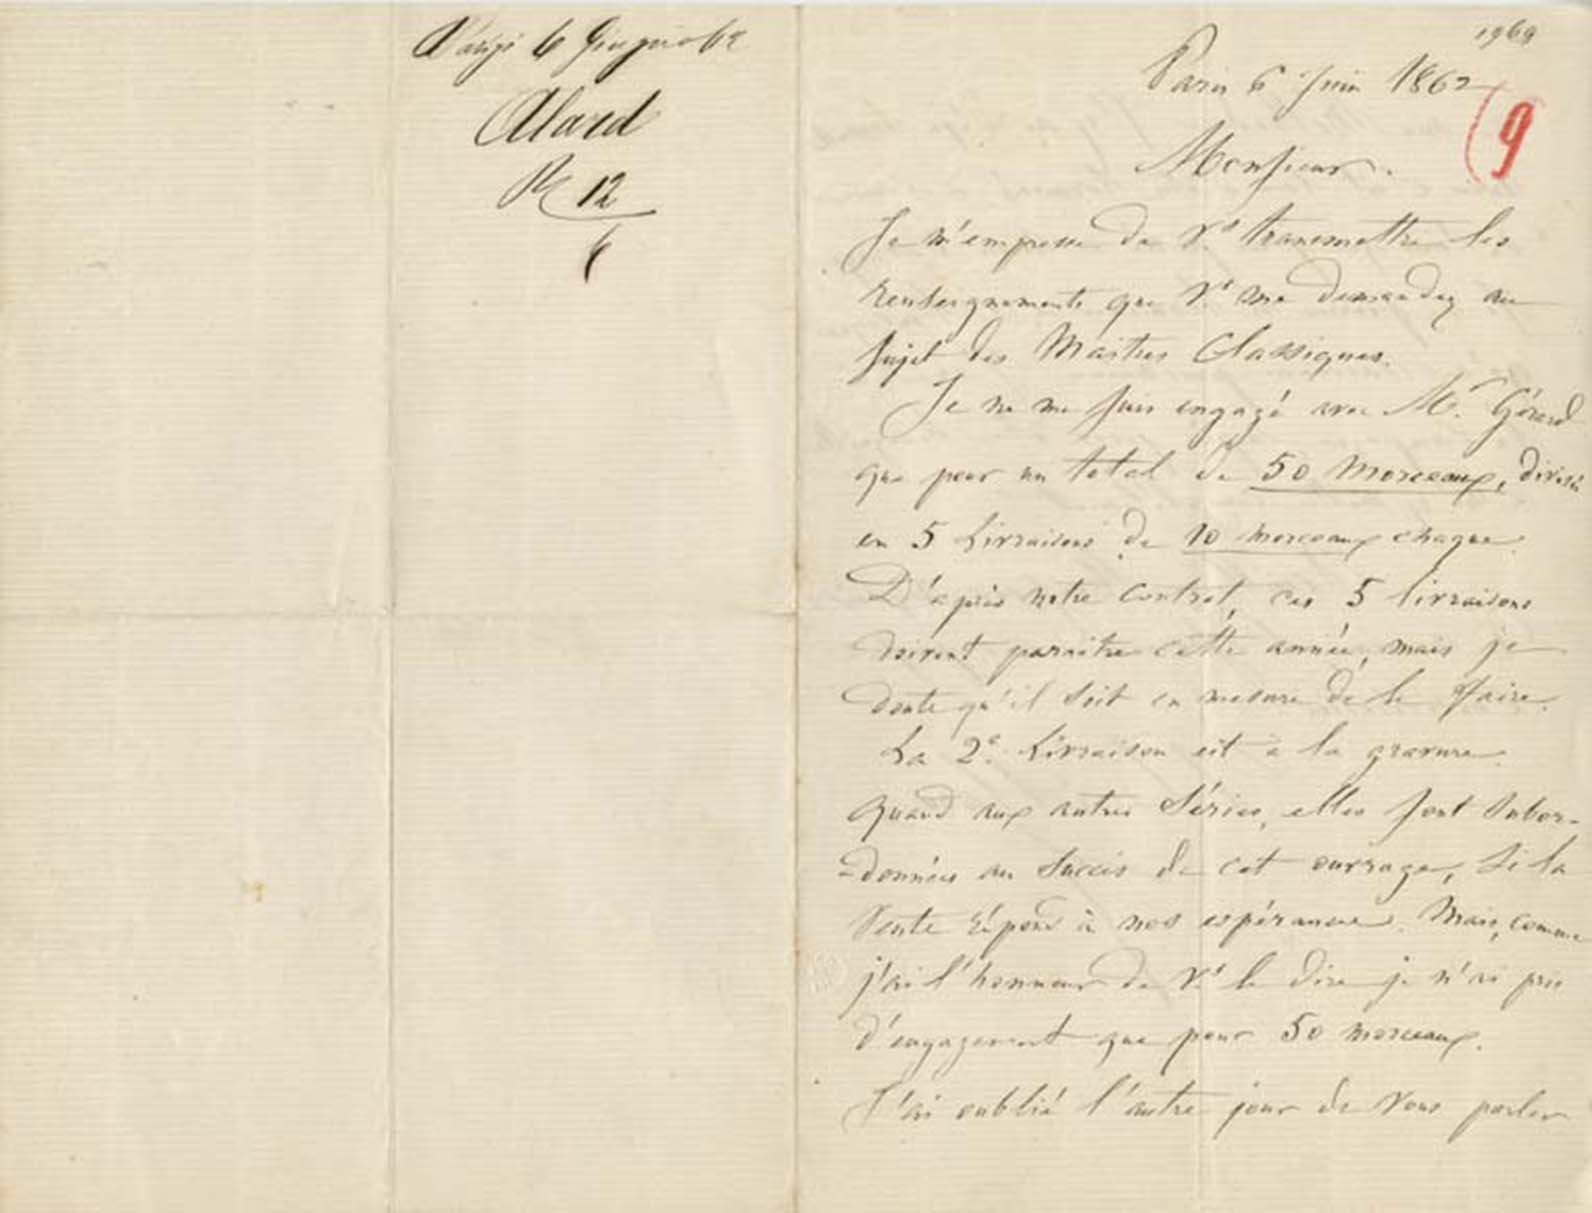 Parigi 6 Giugno 62
Alard
R 12
6
1969
Paris 6 Juin 1862
9
Monsieur.
Je m'empresse de Vs transmettre les
renseignements que Vs me demandez au
sujet des Maitres Classiques.
Je ne me suis engagé avec Mr Gérard
que pour un total de 50 Morceaux, divisés
en 5 Livraisons de 10 morceaux chaque.
D'après notre Contrat, ces 5 livraisons
doivent paraitre cette année, mais je
doute qu'il soit en mesure de le faire.
La 2e Livraison est à la gravure.
Quand aux autres Séries, elles sont subor-
-données au succès de cet ouvrage, si la
Vente répond à nos espérances. Mais, comme
j'ai l'honneur de Vs le dire je n'ai pris
d'engagement que pour 50 morceaux.
J'ai oublié l'autre jour de Vous parler